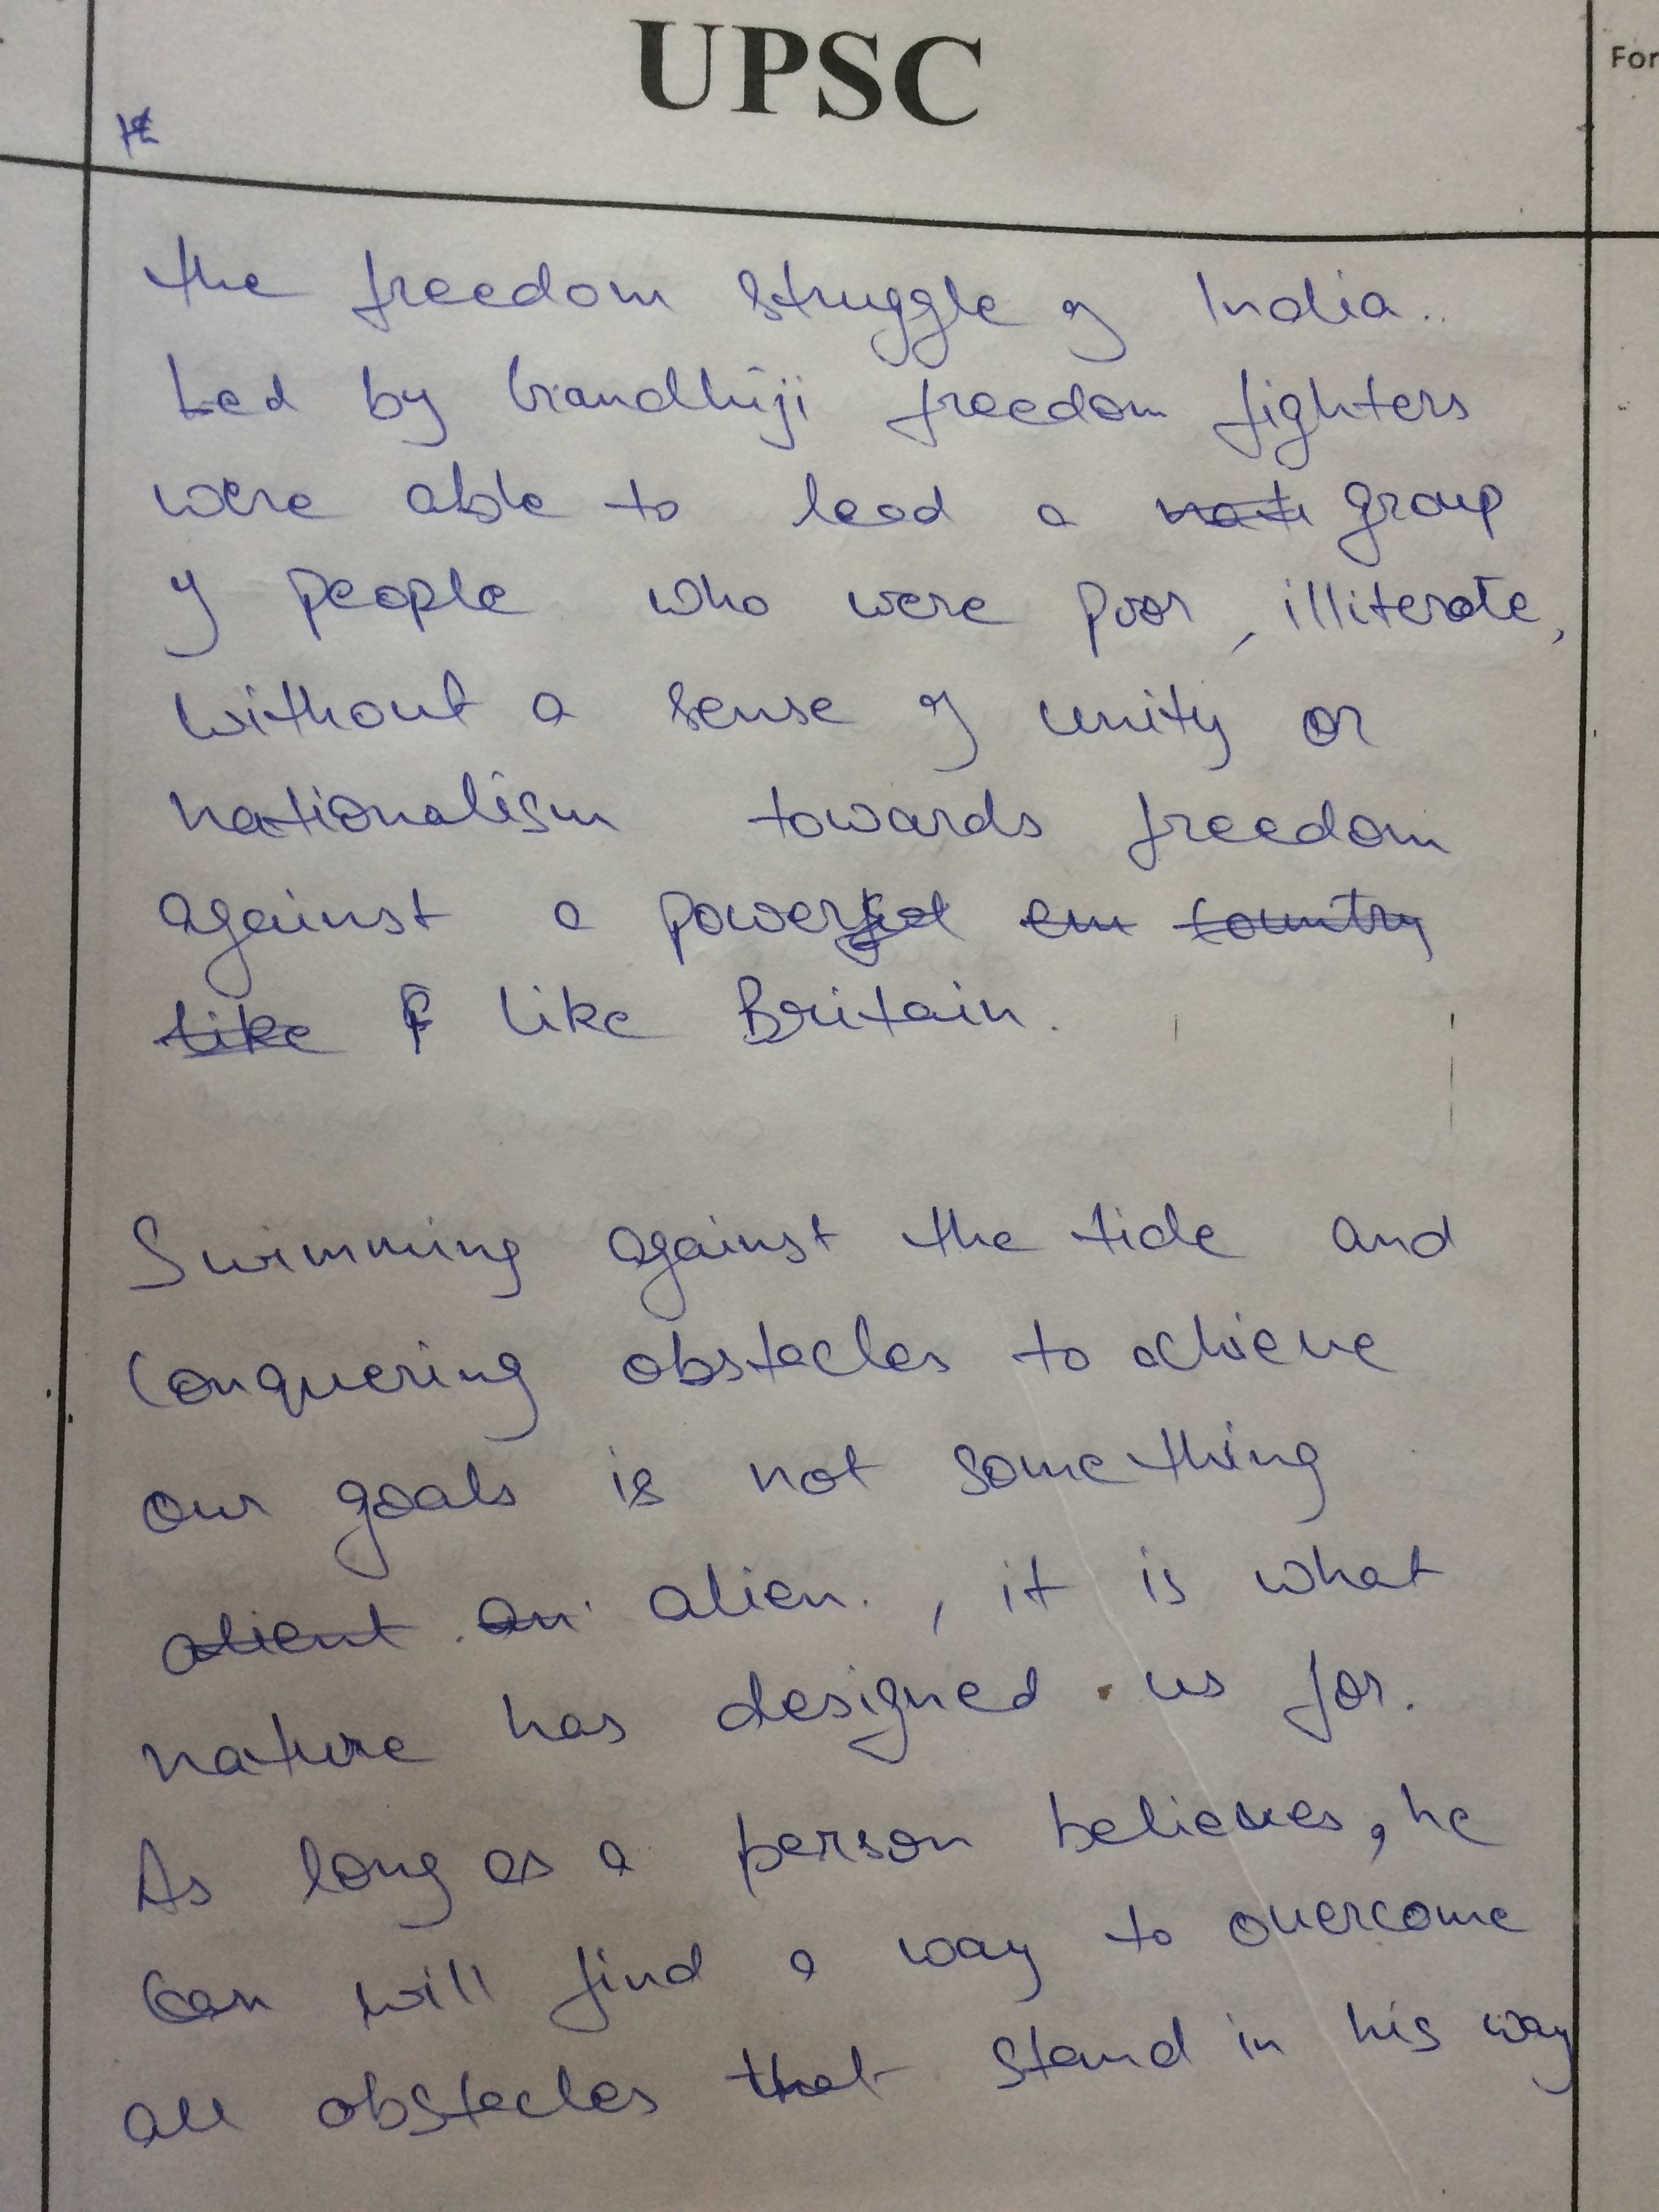 UPSC
For
the freedom struggle of India..
Led by Gandhiji freedom fighters
were able to lead a group
of people who were poor, illiterate,
without a sense of unity or
nationalism towards freedom
against a power
like Britain.
Swimming against the tide and
conquering obstacles to achieve
our goals is not something
alien., it is what
nature has designed us for.
As long as a person believes, he
can will find a way to overcome
all obstacles that stand in his way